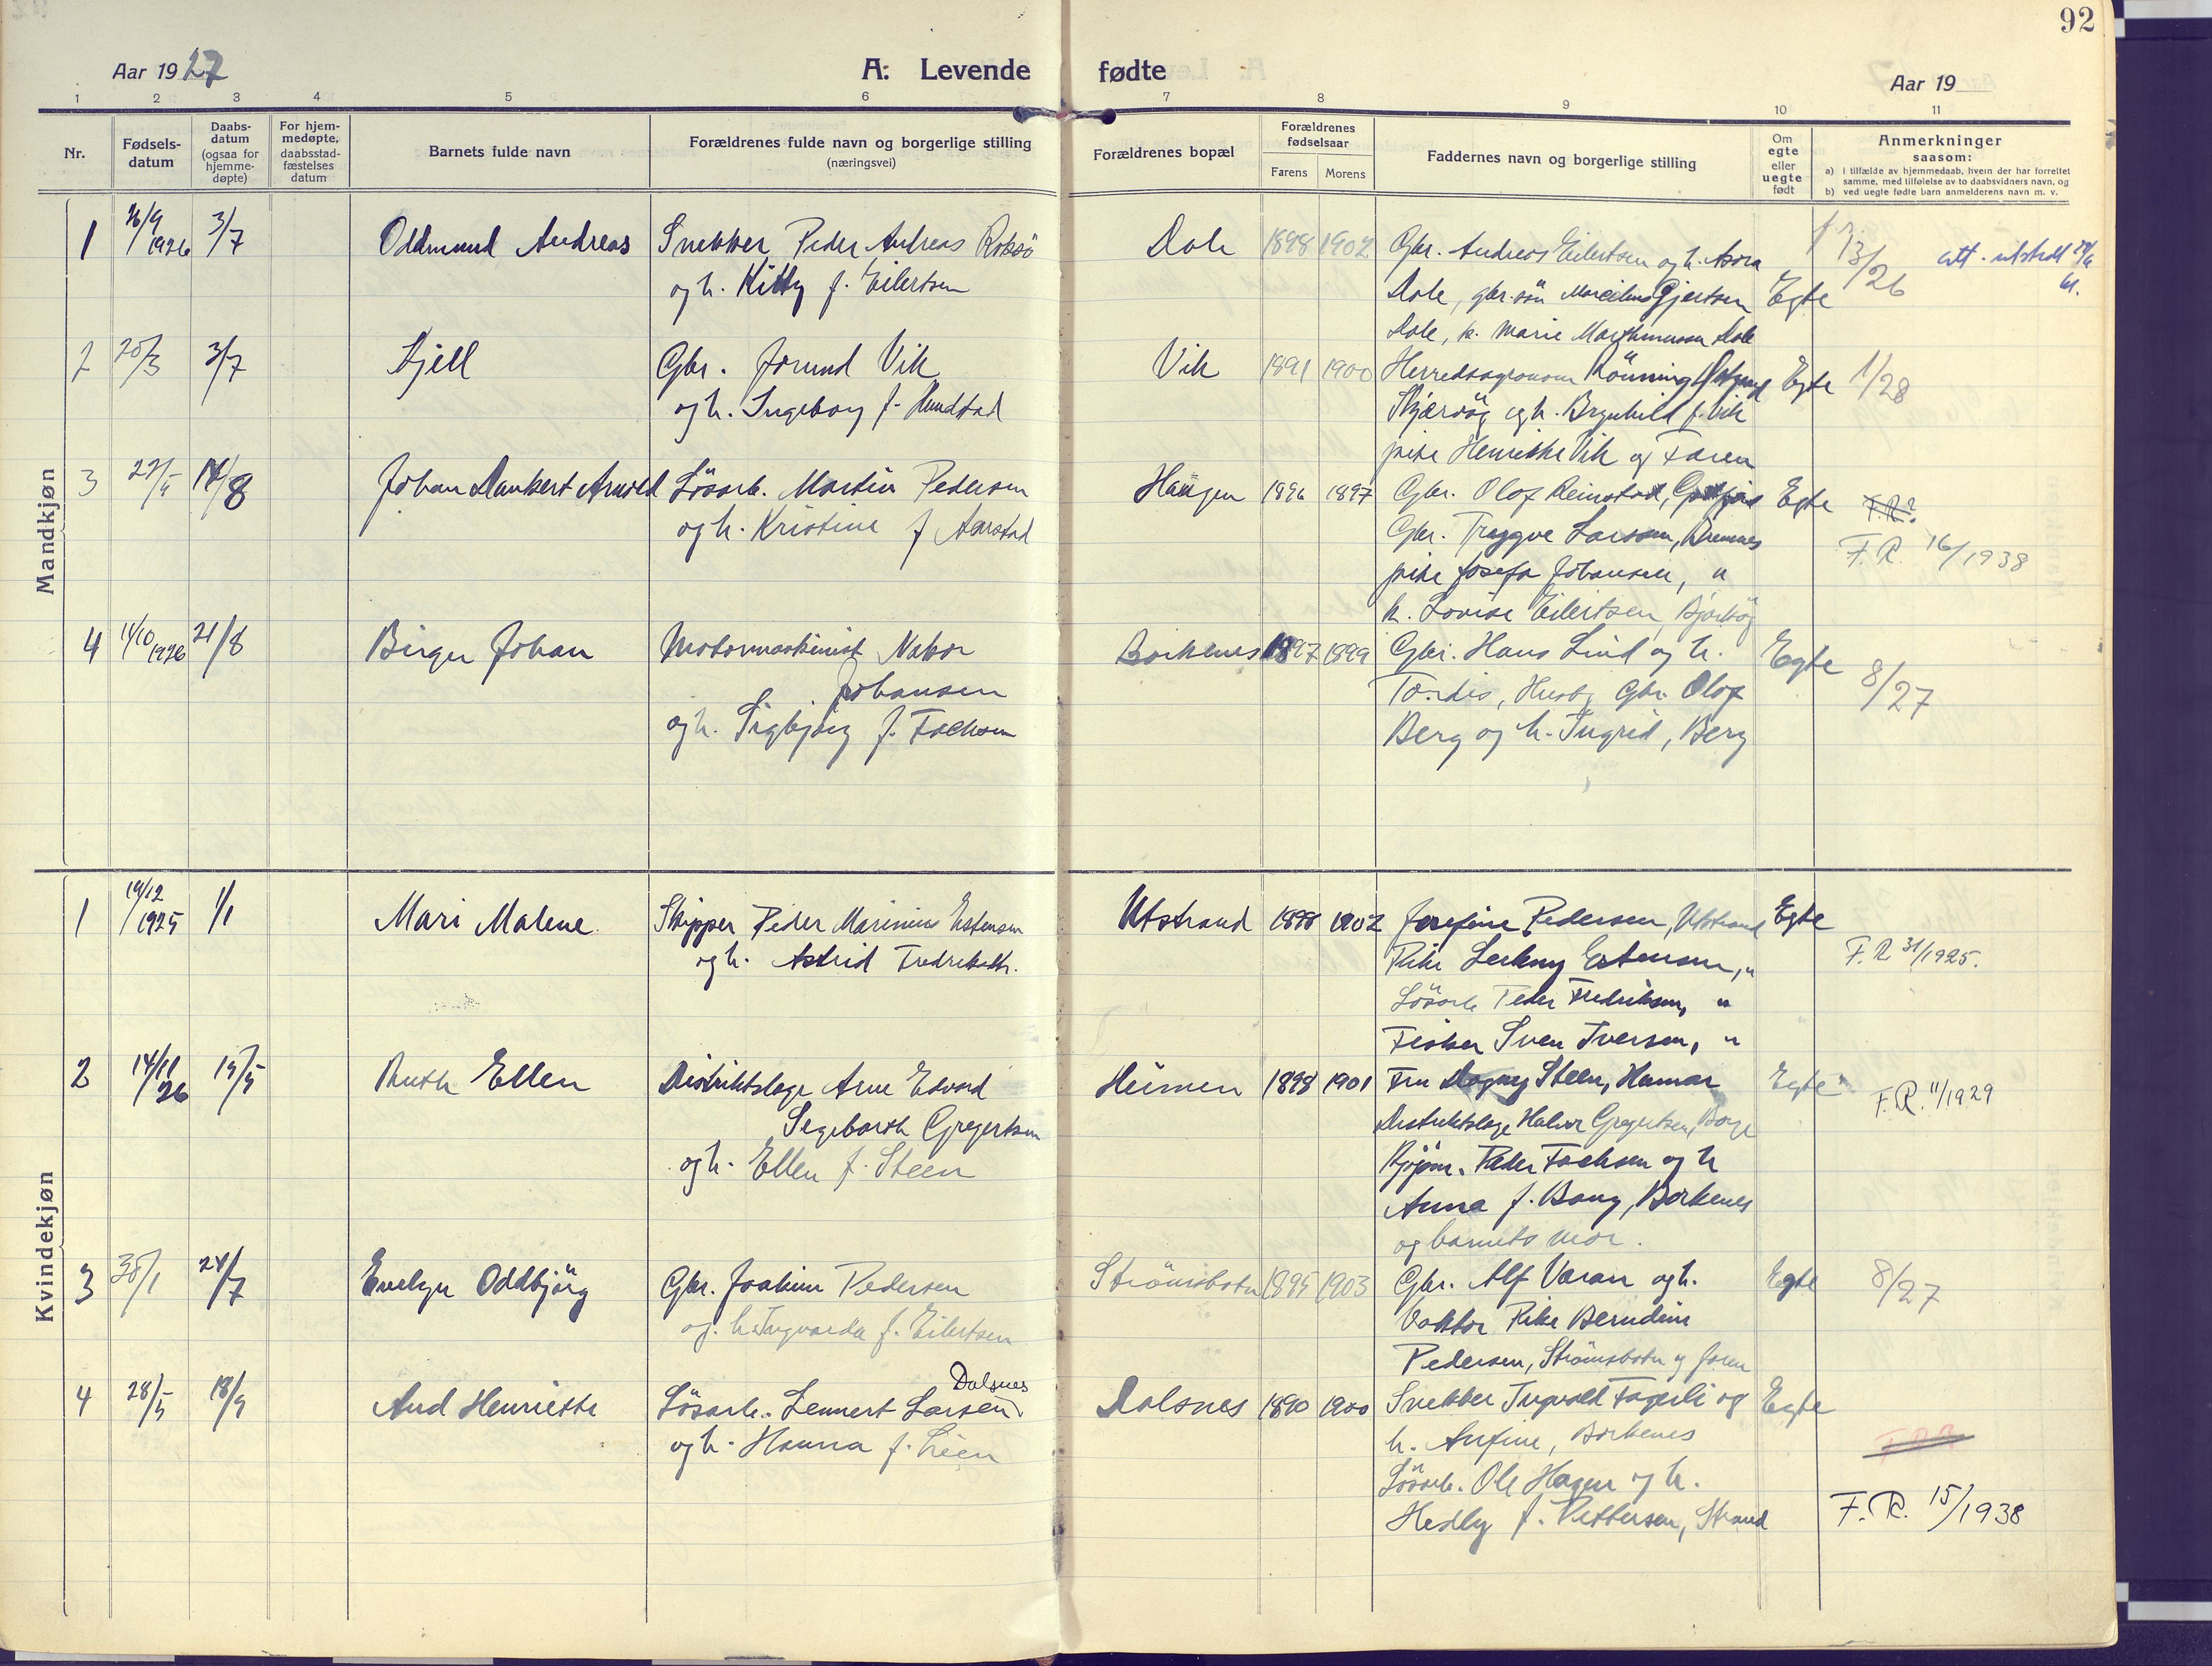 92
Aar 1927
A: Levende fødte
Aar 19
1 2 3 4 5 6 7 8 9 10 11
Nr.
Fødsels-
datum
Daabs-
datum
(ogsaa for
hjemme-
døpte)
For hjem-
medøpte,
daabsstad-
fæstelses
datum
Barnets fulde navn
Forældrenes fulde navn og borgerlige stilling
(næringsvei)
Forældrenes bopæl
Forældrenes
fødselsaar
Farens
Morens
Faddernes navn og borgerlige stilling
Om
egte
eller
uegte
født
Anmerkninger
saasom:
a) i tilfælde av hjemmedaab, hvem der har forrettet
samme, med tilføielse av to daabsvidners navn, og
b) ved uegte fødte barn anmelderens navn m. v.
Mandkjøn
1 26/9 1926 3/7 Oddmund Andreas Snekker Peder Andreas Roksö
og h. Kitty f. Eilertsen
Dale 1898 1902
Gbr. Andreas Eilertsen og h. Asora
Dale, gbr.sön Marcelius Gjertsen
Dale, k. Marie Dale
Egte
13/26
att. utstedt
2 25/3 3/7 Kjell Gbr. Jorund Vik
og h. Ingeborg f. Hundstad
Vik 1891 1900
Herredsagronom Rönning
og h. Brynhild f. Vik
pike Henrikke Vik og Faren
Egte 11/28
3 14/8 Johan Dankert Arnold Lösarb. Martin Pedersen
og h. Kristine f Aarstad
Haugen 1896 1897
Gbr. Olaf Reinstad,
Gbr. Tryggve Larssen,
pike Josefa Johansen, "
k. Lovise Eilertsen,
Egte
F.R.?
F.R. 16/1938
4 14/10 1926 21/8 Birger Johan Motormaskinist Nabor
Johansen
og h. Sigbjörg f. Fochsen
Borkenes 1897 1899
Gbr. Hans Lind og h.
Tordis, Husby Gbr. Olaf
Berg og h. Ingrid, Berg
Egte 8/27
Kvindekjøn
1 19/12 1925 1/1 Mari Malene Skipper Peder Marinius Estensen
og h. Astrid Fredriksdtr.
Utstrand 1898 1902
Josefine Pedersen, Utstrand
Pike Estensen, "
Lösarb Peder Fredriksen, "
Fisker Sven Iversen, "
Egte
F.R 31/1925.
2 14/11 26 15/5 Ruth Ellen Distriktslæge Arne Edvard
Segebarth Gregertsen
og h. Ellen f. Steen
Heimen 1898 1901
Fru Dagny Steen, Hamar
Distriktslæge Halvor Gregertsen,
Kjöpm. Peder Fochsen og h
Anna f. Bang, Borkenes
og barnets mor.
Egte
F.R. 11/1929
3 24/7 Evelyn Oddbjörg Gbr. Joakim Pedersen
og h. Ingvarda f. Eilertsen
Strömsbotn 1895 1903
Gbr. Alf Varan og h.
Pike Berndine
Pedersen, Strömsbotn og faren
Egte 8/27
4 28/5 18/9 Aud Henriette Lösarb. Lennert Larsen
Dalsnes
og h. Hanna f. Lieen
Dalsnes 1890 1900
Snekker Ingvald Fagerli og
h. Arfine, Borkenes
Lösarb. Ole Hagen og h.
Hedly f. Pettersen, Strand
Egte
F.R.?
F.R. 15/1938